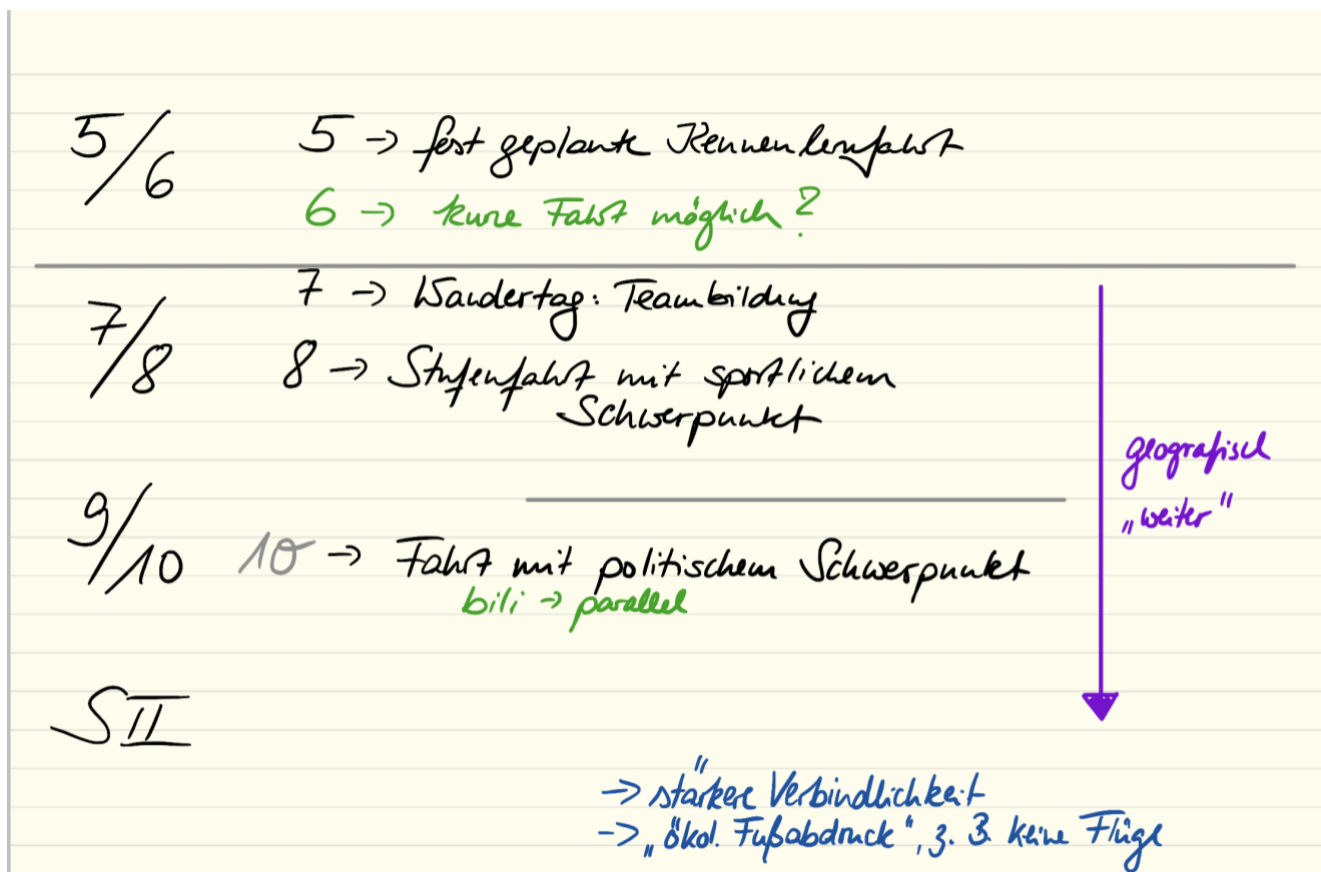 5/6
5 → fest geplante Kennenlernfahrt
6 → kurze Fahrt möglich?
7/8
7 → Wandertag: Teambildung
8 → Stufenfahrt mit sportlichem
Schwerpunkt
geografisch
„weiter"
9/10
10 → Fahrt mit politischem Schwerpunkt
bili → parallel
SII
→ stärkere Verbindlichkeit
→ „ökol. Fußabdruck", z. B. keine Flüge